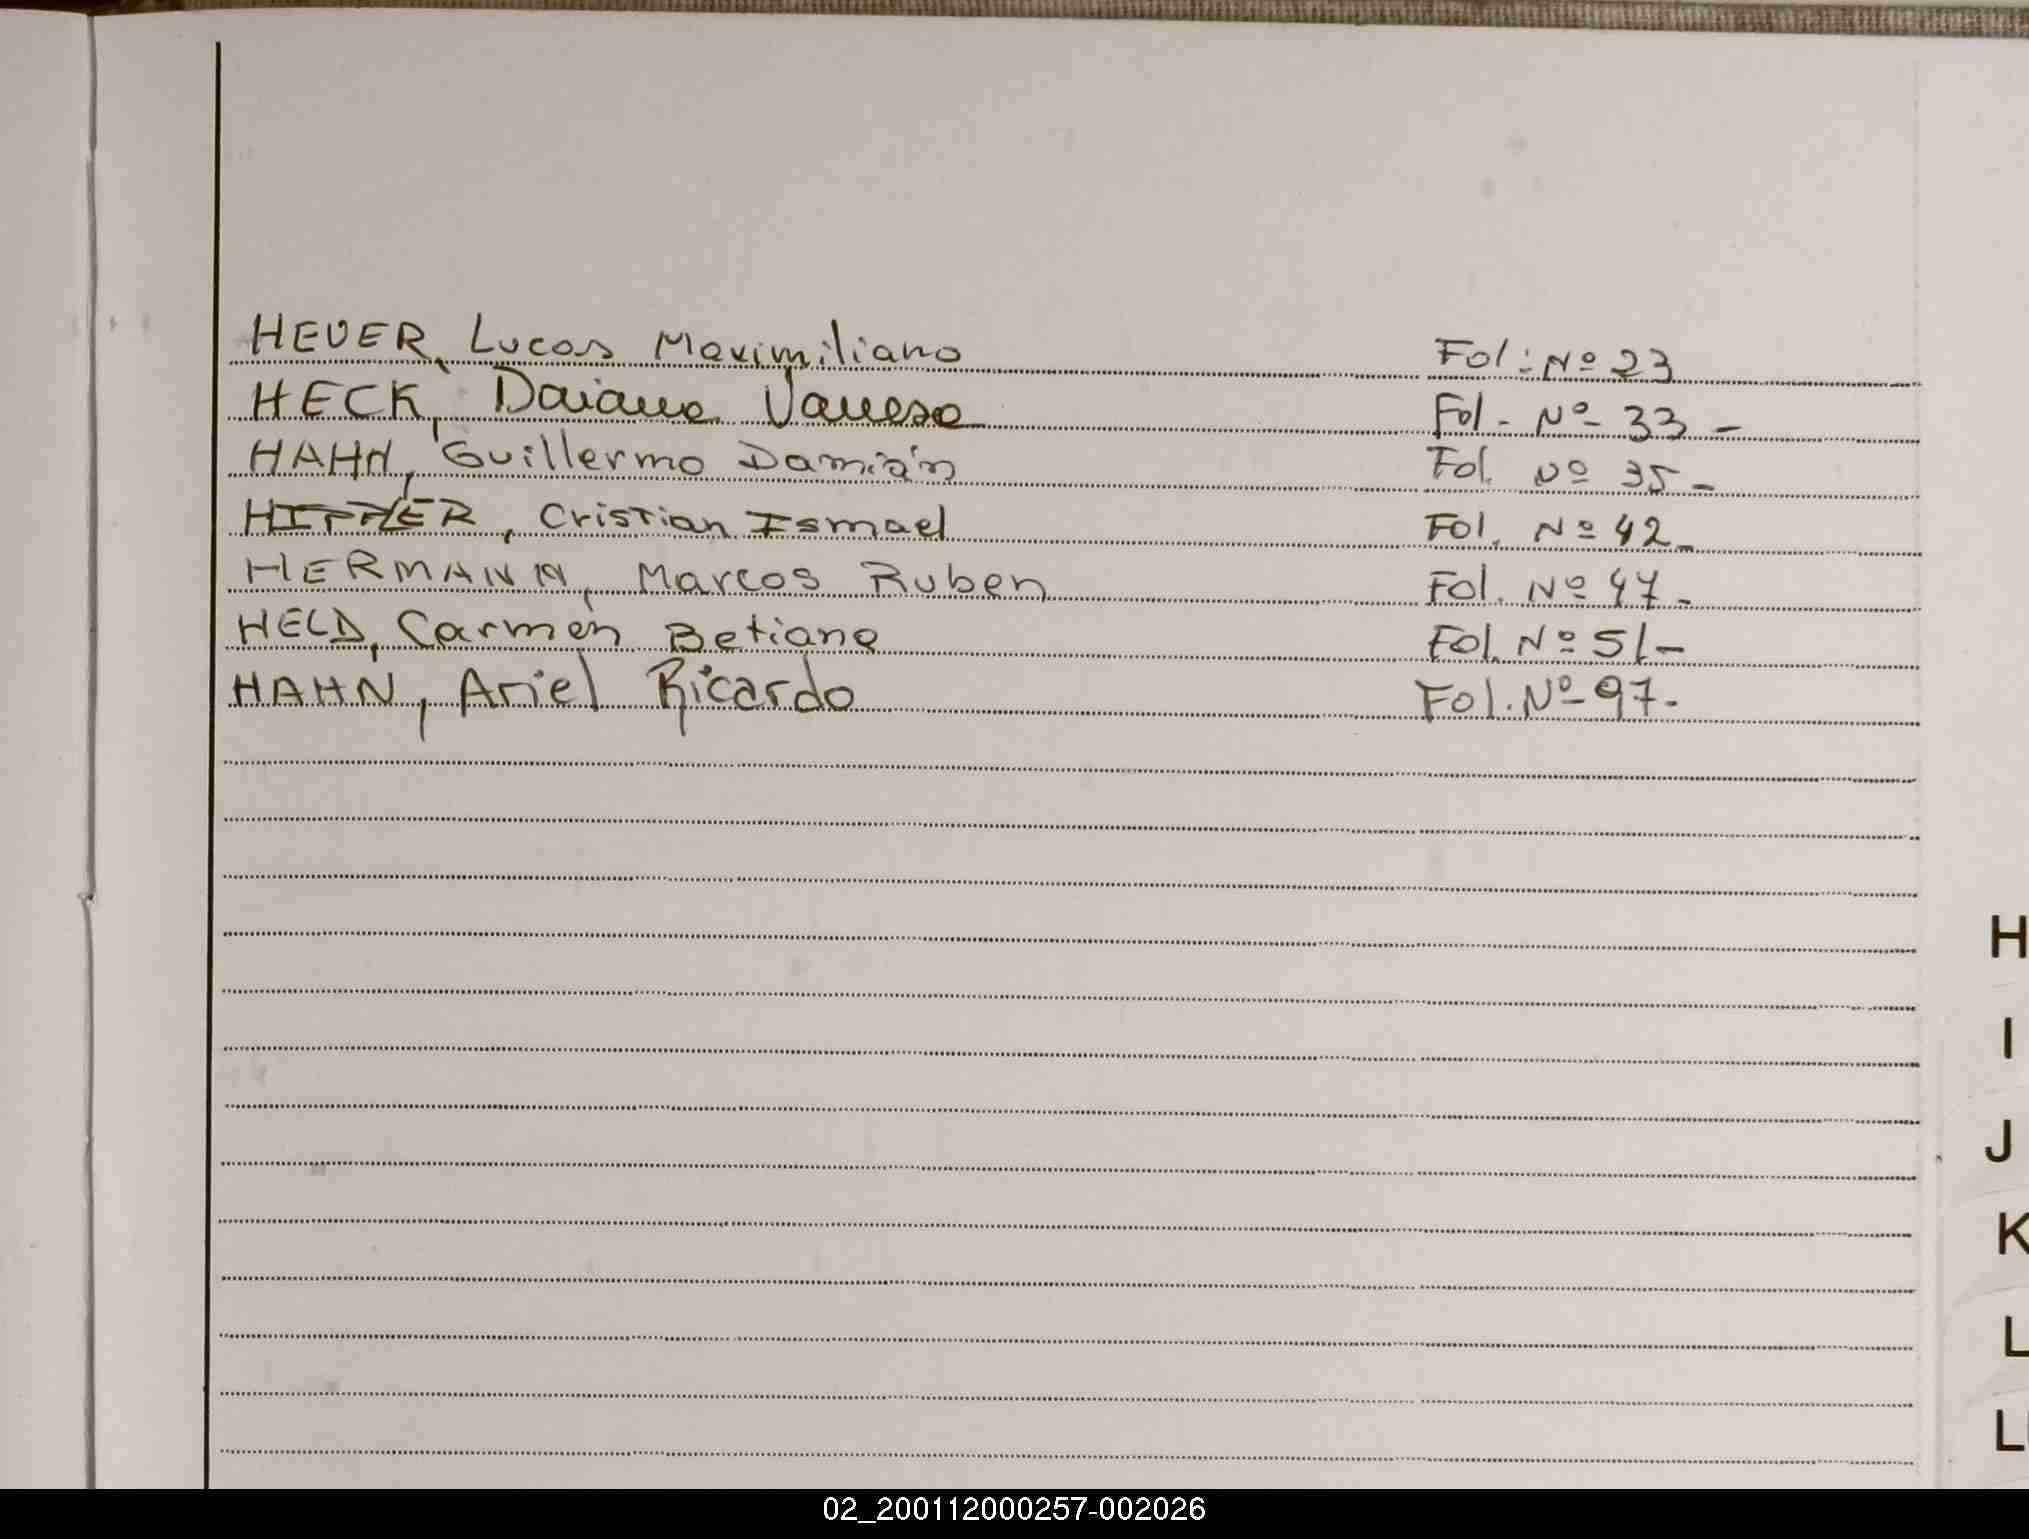 HEUER, Lucas Maximiliano Fol: Nº 23
HECK, Daiana Vanesa Fol - Nº- 33 -
HAHN, Guillermo Damián Fol. Nº 35 -
Cristian Ismael Fol. Nº 42 -
HERMANN, Marcos Ruben Fol. Nº 47 -
HELD, Carmen Betiana Fol. Nº 51 -
HAHN, Ariel Ricardo Fol. Nº- 97 -
H
I
J
K
L
02_200112000257-002026